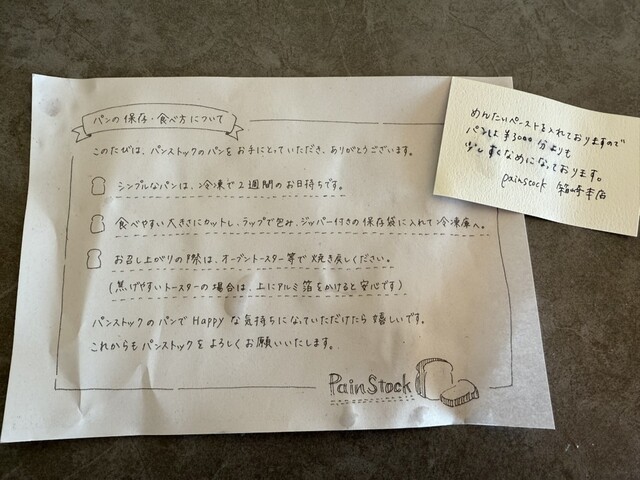 パンの保存・食べ方について
このたびは、パンストックのパンをお手にとっていただき、ありがとうございます。
シンプルなパンは、冷凍で2週間のお日持ちです。
食べやすい大きさにカットし、ラップで包み、ジッパー付きの保存袋に入れて冷凍庫へ。
お召し上がりの際は、オーブントースター等で焼き戻しください。
(焦げやすいトースターの場合は、上にアルミ箔をかけると安心です)
パンストックのパンでHappyな気持ちになっていただけたら嬉しいです。
これからもパンストックをよろしくお願いいたします。
Pain Stock
めんたいペーストを入れておりますので
パンは¥3000分よりも
少しすくなめになっております。
painstock 箱崎本店